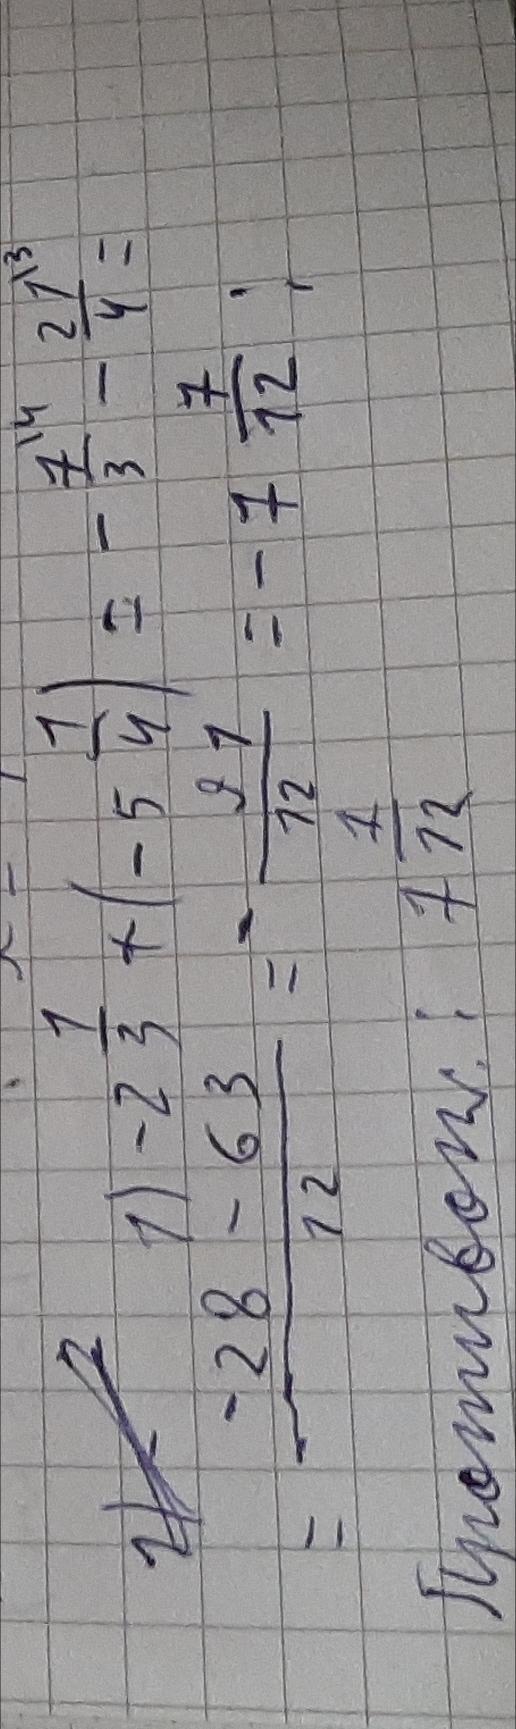 2) 1) -2 1/3 + (-5 1/4) = - 7/3 \4 - 21/4 \3 =
= (-28 - 63)/12 = - 91/12 = -7 7/12 ;
Противопол. : 7 7/12